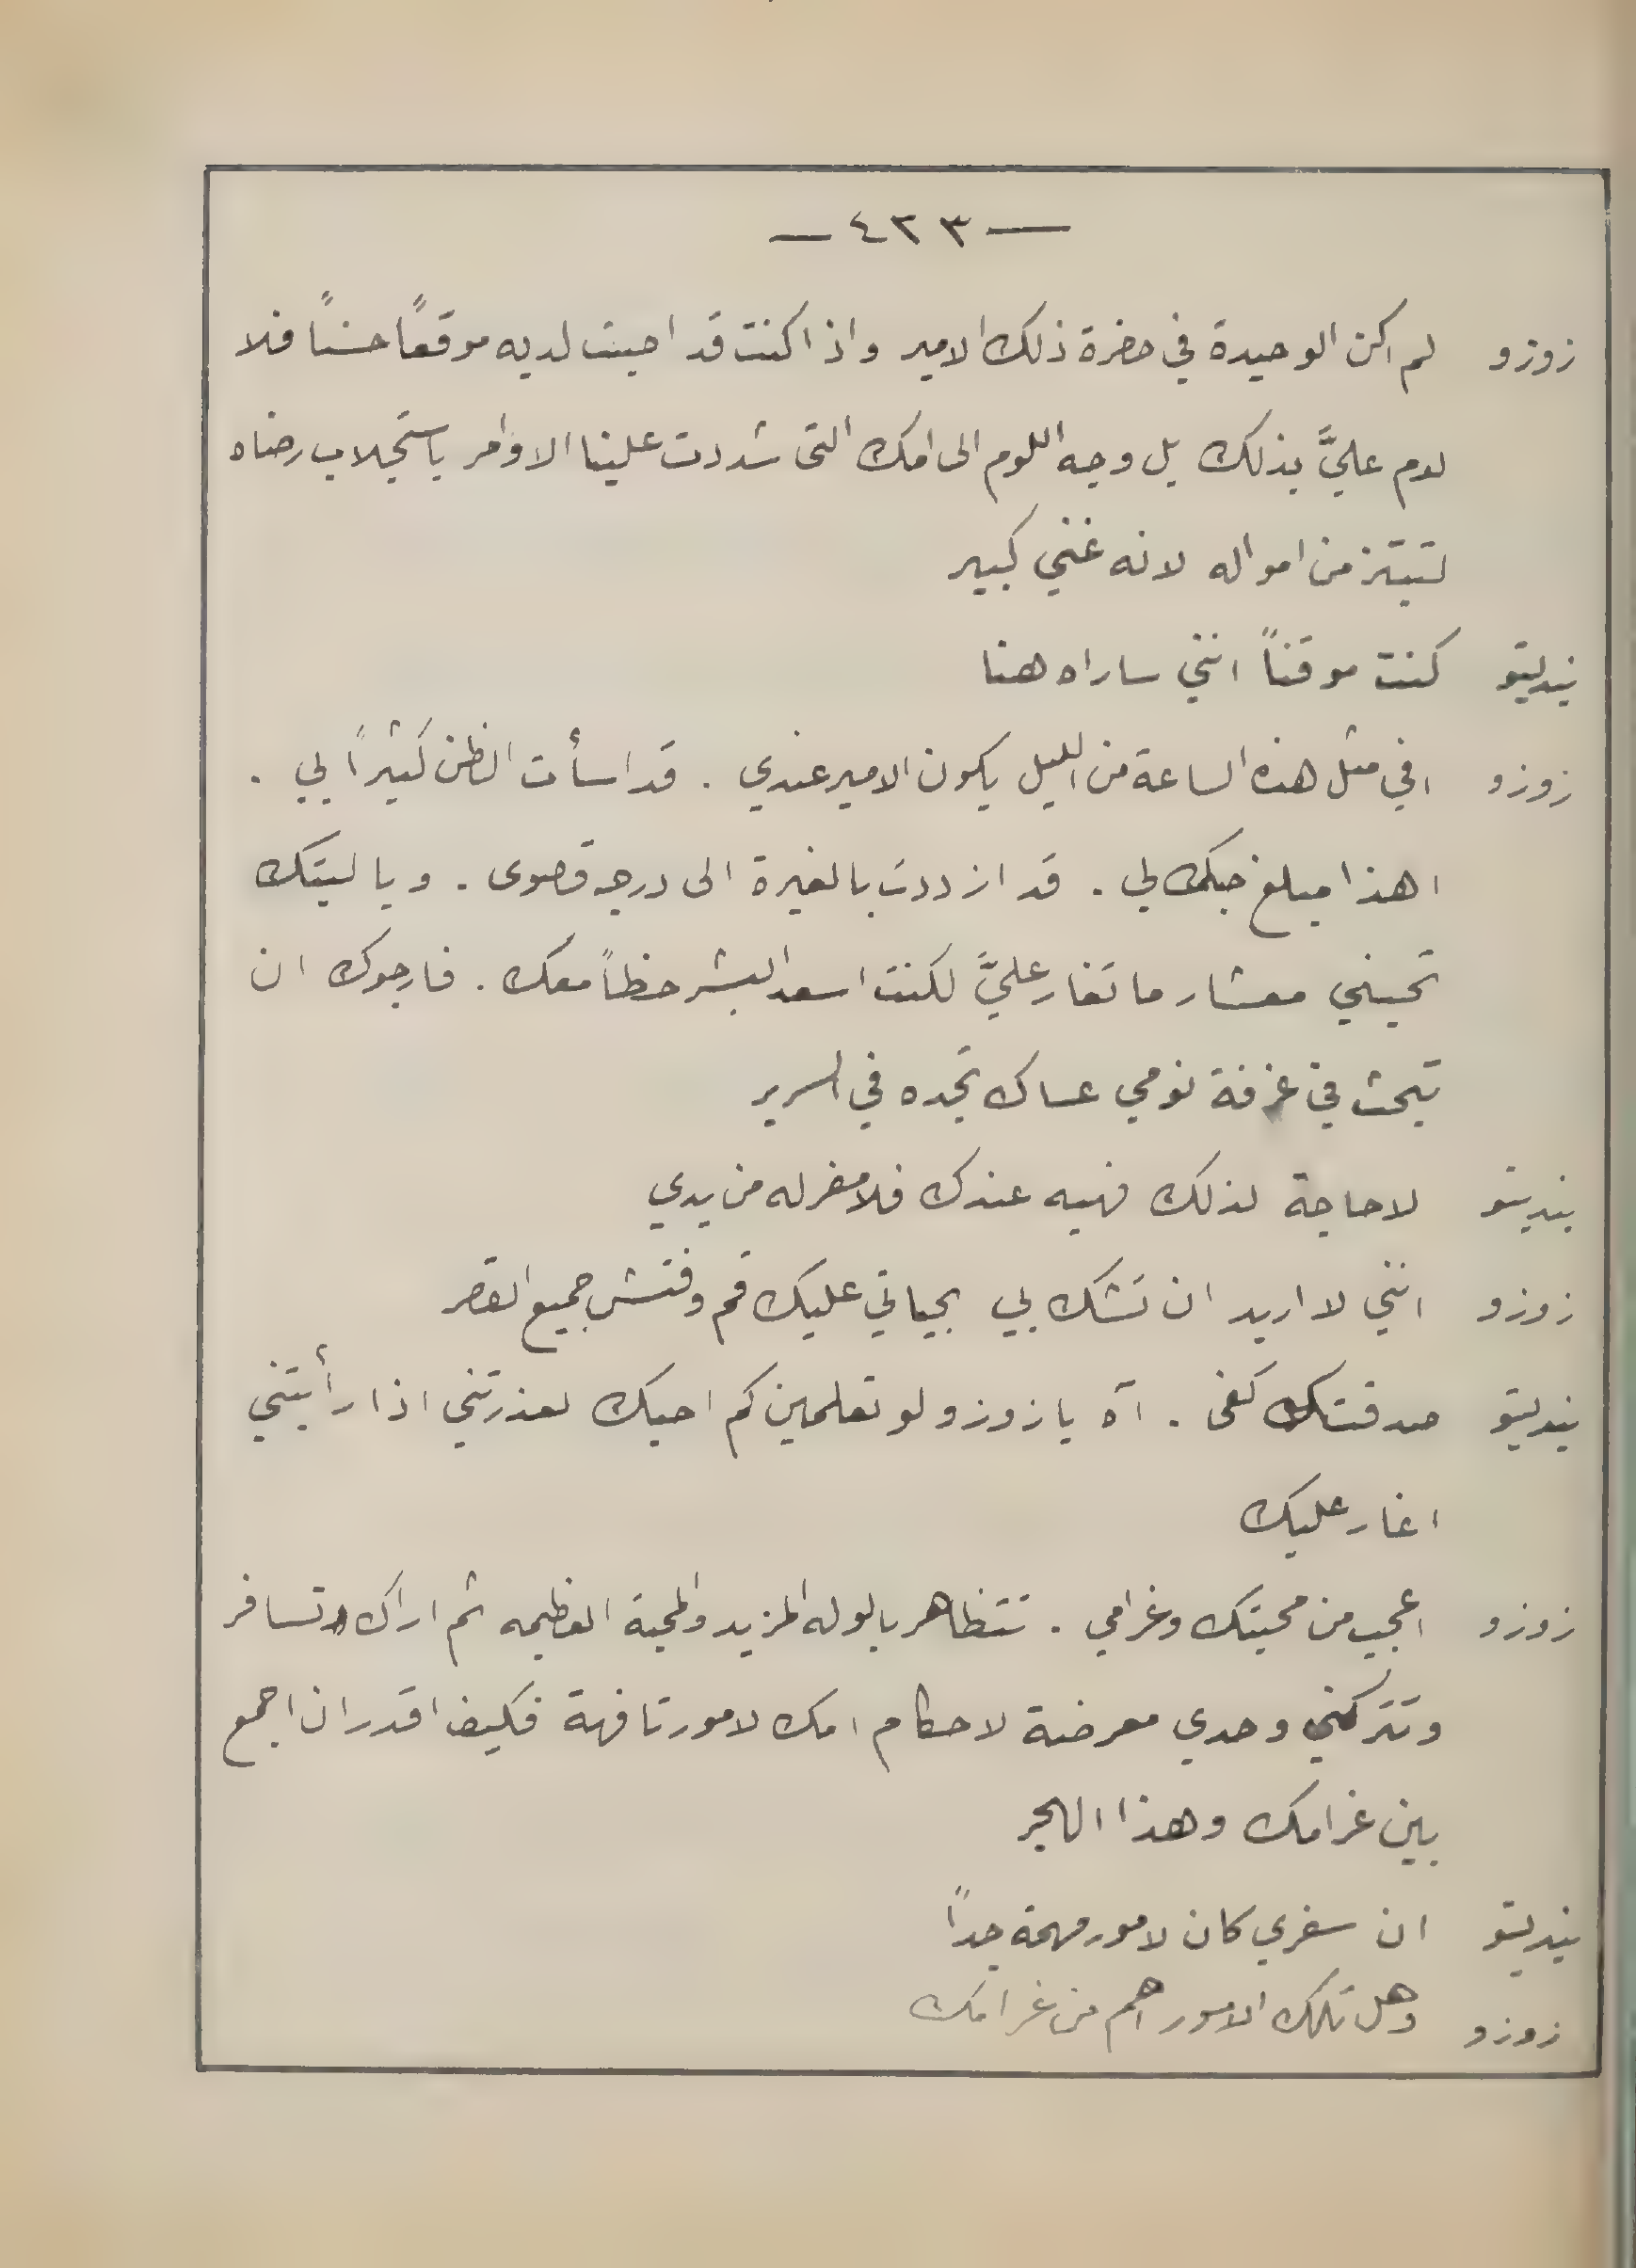 — ٤٢٣ —
زوزو لم اكن الوحيدة في حضرة ذلك الامير واذا كنت قد اصبت لديه موقعًا حسنًا فلا
لوم عليَّ بذلك بل وجه اللوم الى امك التى شددت علينا الاوامر باستجلاب رضاه
لتبتز من امواله لانه غني كبير
بنديتو كنت موقنًا انني ساراه هنا
زوزو افي مثل هذه الساعة من الليل يكون الامير عندي . قد اسأت الظن كثيرًا بي .
اهذا مبلغ حبك لي . قد ازددت بالغيرة الى درجه قصوى . ويا ليتك
تحبني معشار ما تغار عليَّ لكنت اسعد البشر حظاً معك . فارجوك ان
تبحث في غرفة نومي عساك تجده في السرير
بنديتو لا حاجة لذلك فهبه عندك فلا مفر له من يدي
زوزو انني لا اريد ان تشك بي بحياتي عليك قم وفتش جميع القصر
بنديتو صدقتك كفى . آه يا زوزو لو تعلمين كم احبك لعذرتني اذا رأيتني
اغار عليك
زوزو اعجب من محبتك وغرامي . تتظاهر بالوله المزيد والمحبة العظيمه ثم اراك تسافر
وتتركني وحدي معرضة لاحكام امك لامور تافهة فكيف اقدر ان اجمع
بين غرامك وهذا الهجر
بنديتو ان سفري كان لامور مهمة جداً
زوزو وهل تلك الامور اهم من غرامك